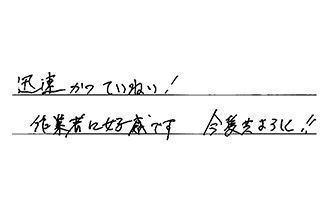 迅速かつていねい!
作業者に好感です 今後共よろしく!!